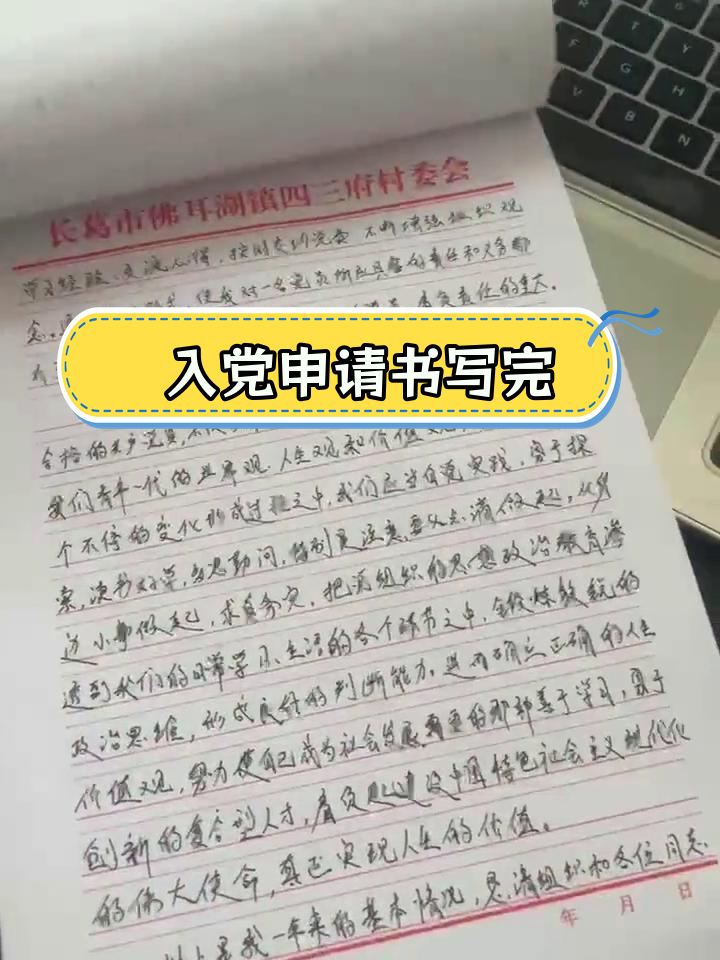 长葛市佛耳湖镇四三府村委会
学习经验、交流心得，按时交纳党费 不断增强组织观
念。 使我对一名党员所应具备的责任和义务都
肩负责任的重大。
入党申请书写完
合格的共产党员，不仅
我们青年一代的世界观 人生观和价值观
个不停的变化形成过程之中，我们应当自觉实践，勇于探
索，读书好学，多思勤问，特别更注意，要从点滴做起，从身
边小事做起，求真务实，把党组织的思想政治教育渗
透到我们的日常学习、生活的各个环节之中，锻炼敏锐的
政治思维，形成良好的判断能力，进而确立正确的人生
价值观，努力使自己成为社会发展需要的那种善于学习，勇于
创新的复合型人才，肩负起建设中国特色社会主义现代化
的伟大使命，真正实现人生的价值。
以上是我一年来的基本情况，恳请组织和各位同志
年 月 日